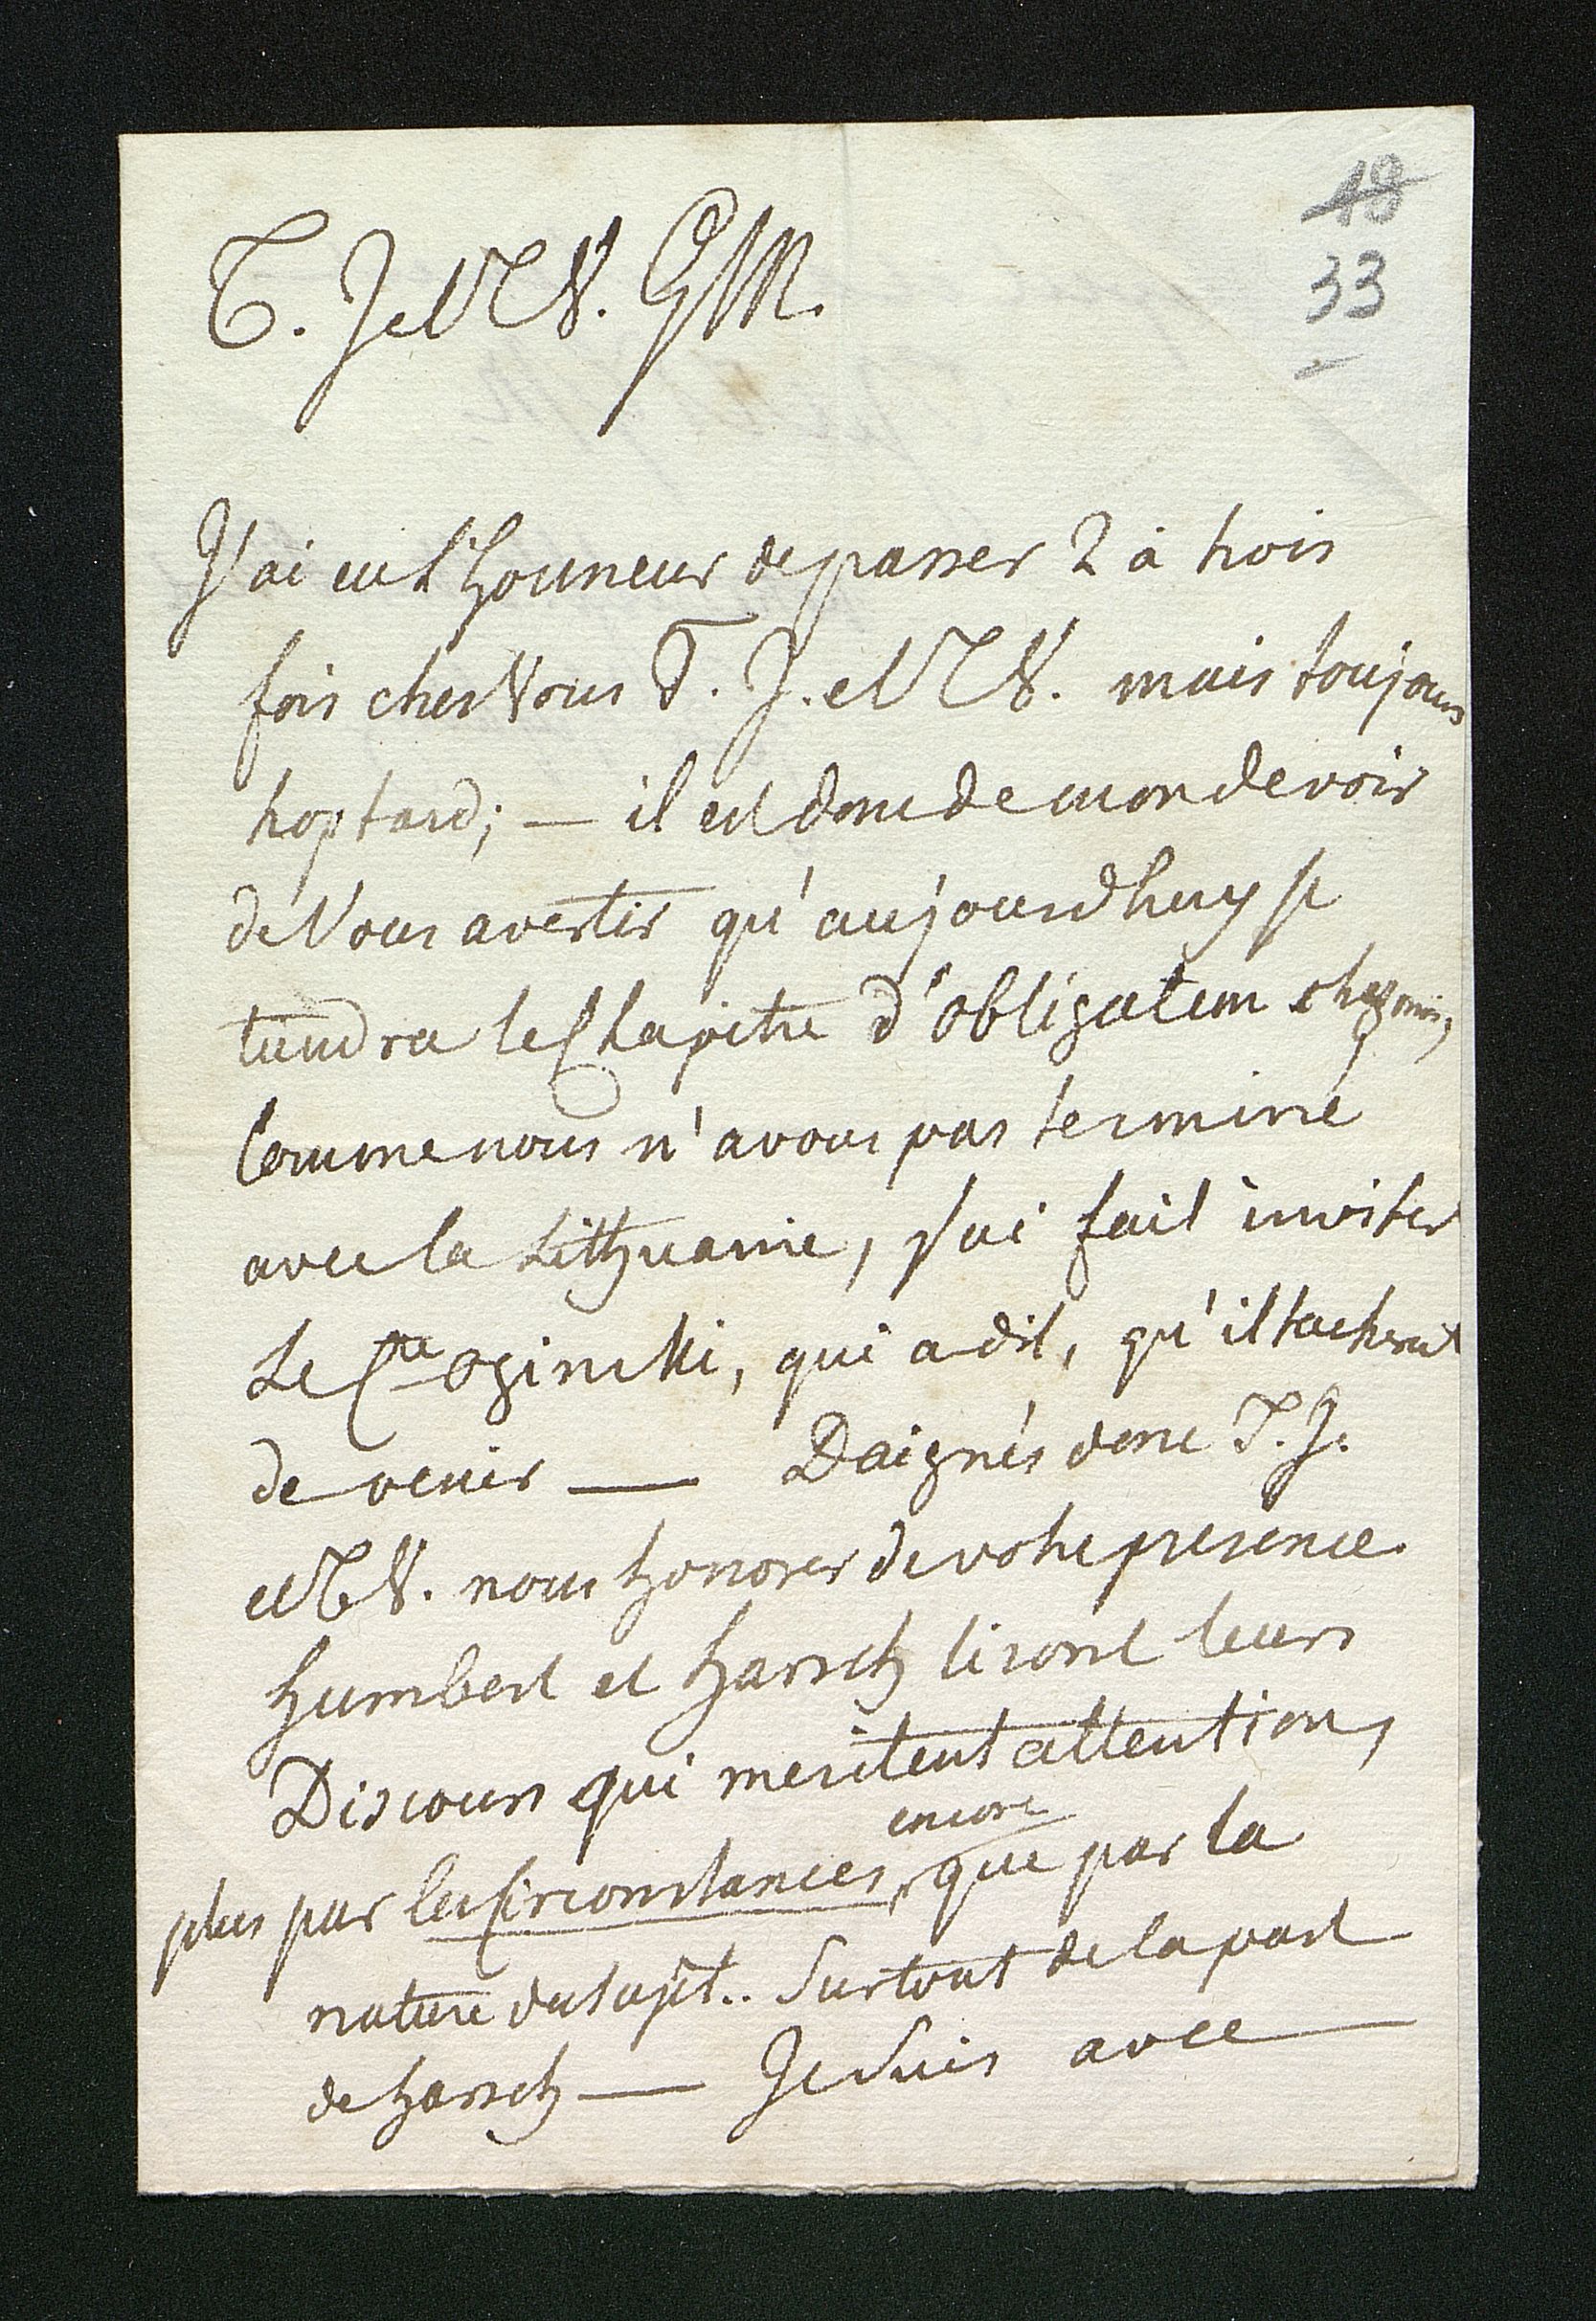 18
33
T. J et T V. G M.
J'ai eu L'honneur de passer 2 à trois
fois chez Vous T. J. et T V. mais toujours
trop tard; — il est donc de mon devoir
de Vous avertir qu'aujourdhuy se
tiendra le Chapitre d'obligation chez moi,
Comme nous n'avons pas terminé
avec la Lithuanie, J'ai fait inviter
Le Cte Oginski, qui a dit, qu'il tacherait
de venir — Daignés donc T. J.
et T V. nous honorer de votre presence.
Humbert et Harsch liront leurs
Discours qui meritent attention,
plus par les Circonstances encore que par la
nature du sujèt.. Surtout de la part
de Harsch — Je suis avec